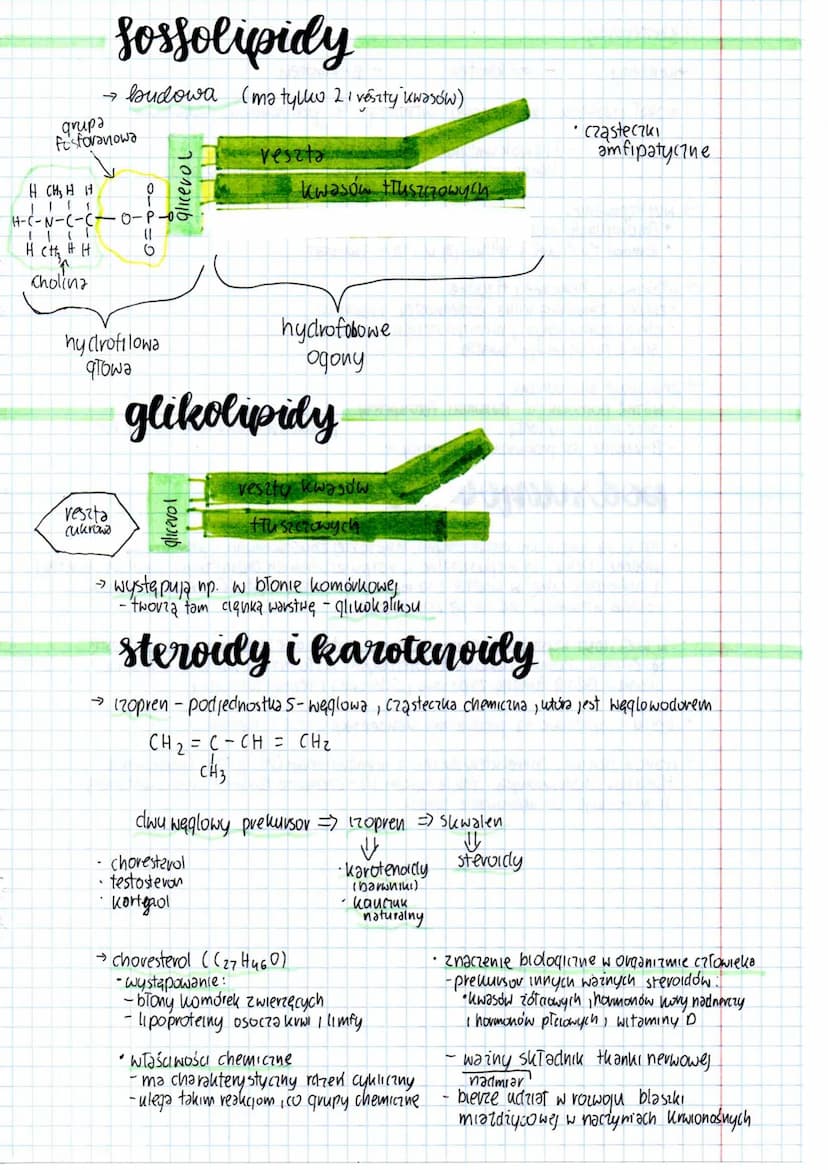 fosfolipidy
→ budowa (ma tylko 2 i reszty kwasów)
grupa
fosforanowa
• cząsteczki
amfipatyczne
reszta
kwasów tłuszczowych
glicerol
H CH3 H H
H-C-N-C-C-O-P-O
H CH3 H H
O
O
cholina
hydrofilowa
głowa
hydrofobowe
ogony
glikolipidy
reszta
cukrowa
glicerol
reszty kwasów
tłuszczowych
→ występują np. w błonie komórkowej
- tworzą tam cienką warstwę - glikokaliksu
steroidy i karotenoidy
→ izopren - podjednostka 5-węglowa, cząsteczka chemiczna, która jest węglowodorem
CH2 = C - CH = CH2
CH3
dwuwęglowy prekursor ⇒ izopren ⇒ skwalen
⇓ ⇓
• choresterol
• testosteron
• kortyzol
• karotenoidy
(barwniki)
• kauczuk
naturalny
steroidy
→ choresterol (C27H46O)
- występowanie:
- błony komórek zwierzęcych
- lipoproteiny osocza krwi i limfy
• właściwości chemiczne
- ma charakterystyczny rdzeń cykliczny
- ulega takim reakcjom, co grupy chemiczne
• znaczenie biologiczne w organizmie człowieka
- prekursor innych ważnych steroidów:
• kwasów żółciowych, hormonów kory nadnerczy
i hormonów płciowych, witaminy D
- ważny składnik tkanki nerwowej
nadmiar
- bierze udział w rozwoju blaszki
miażdżycowej w naczyniach krwionośnych